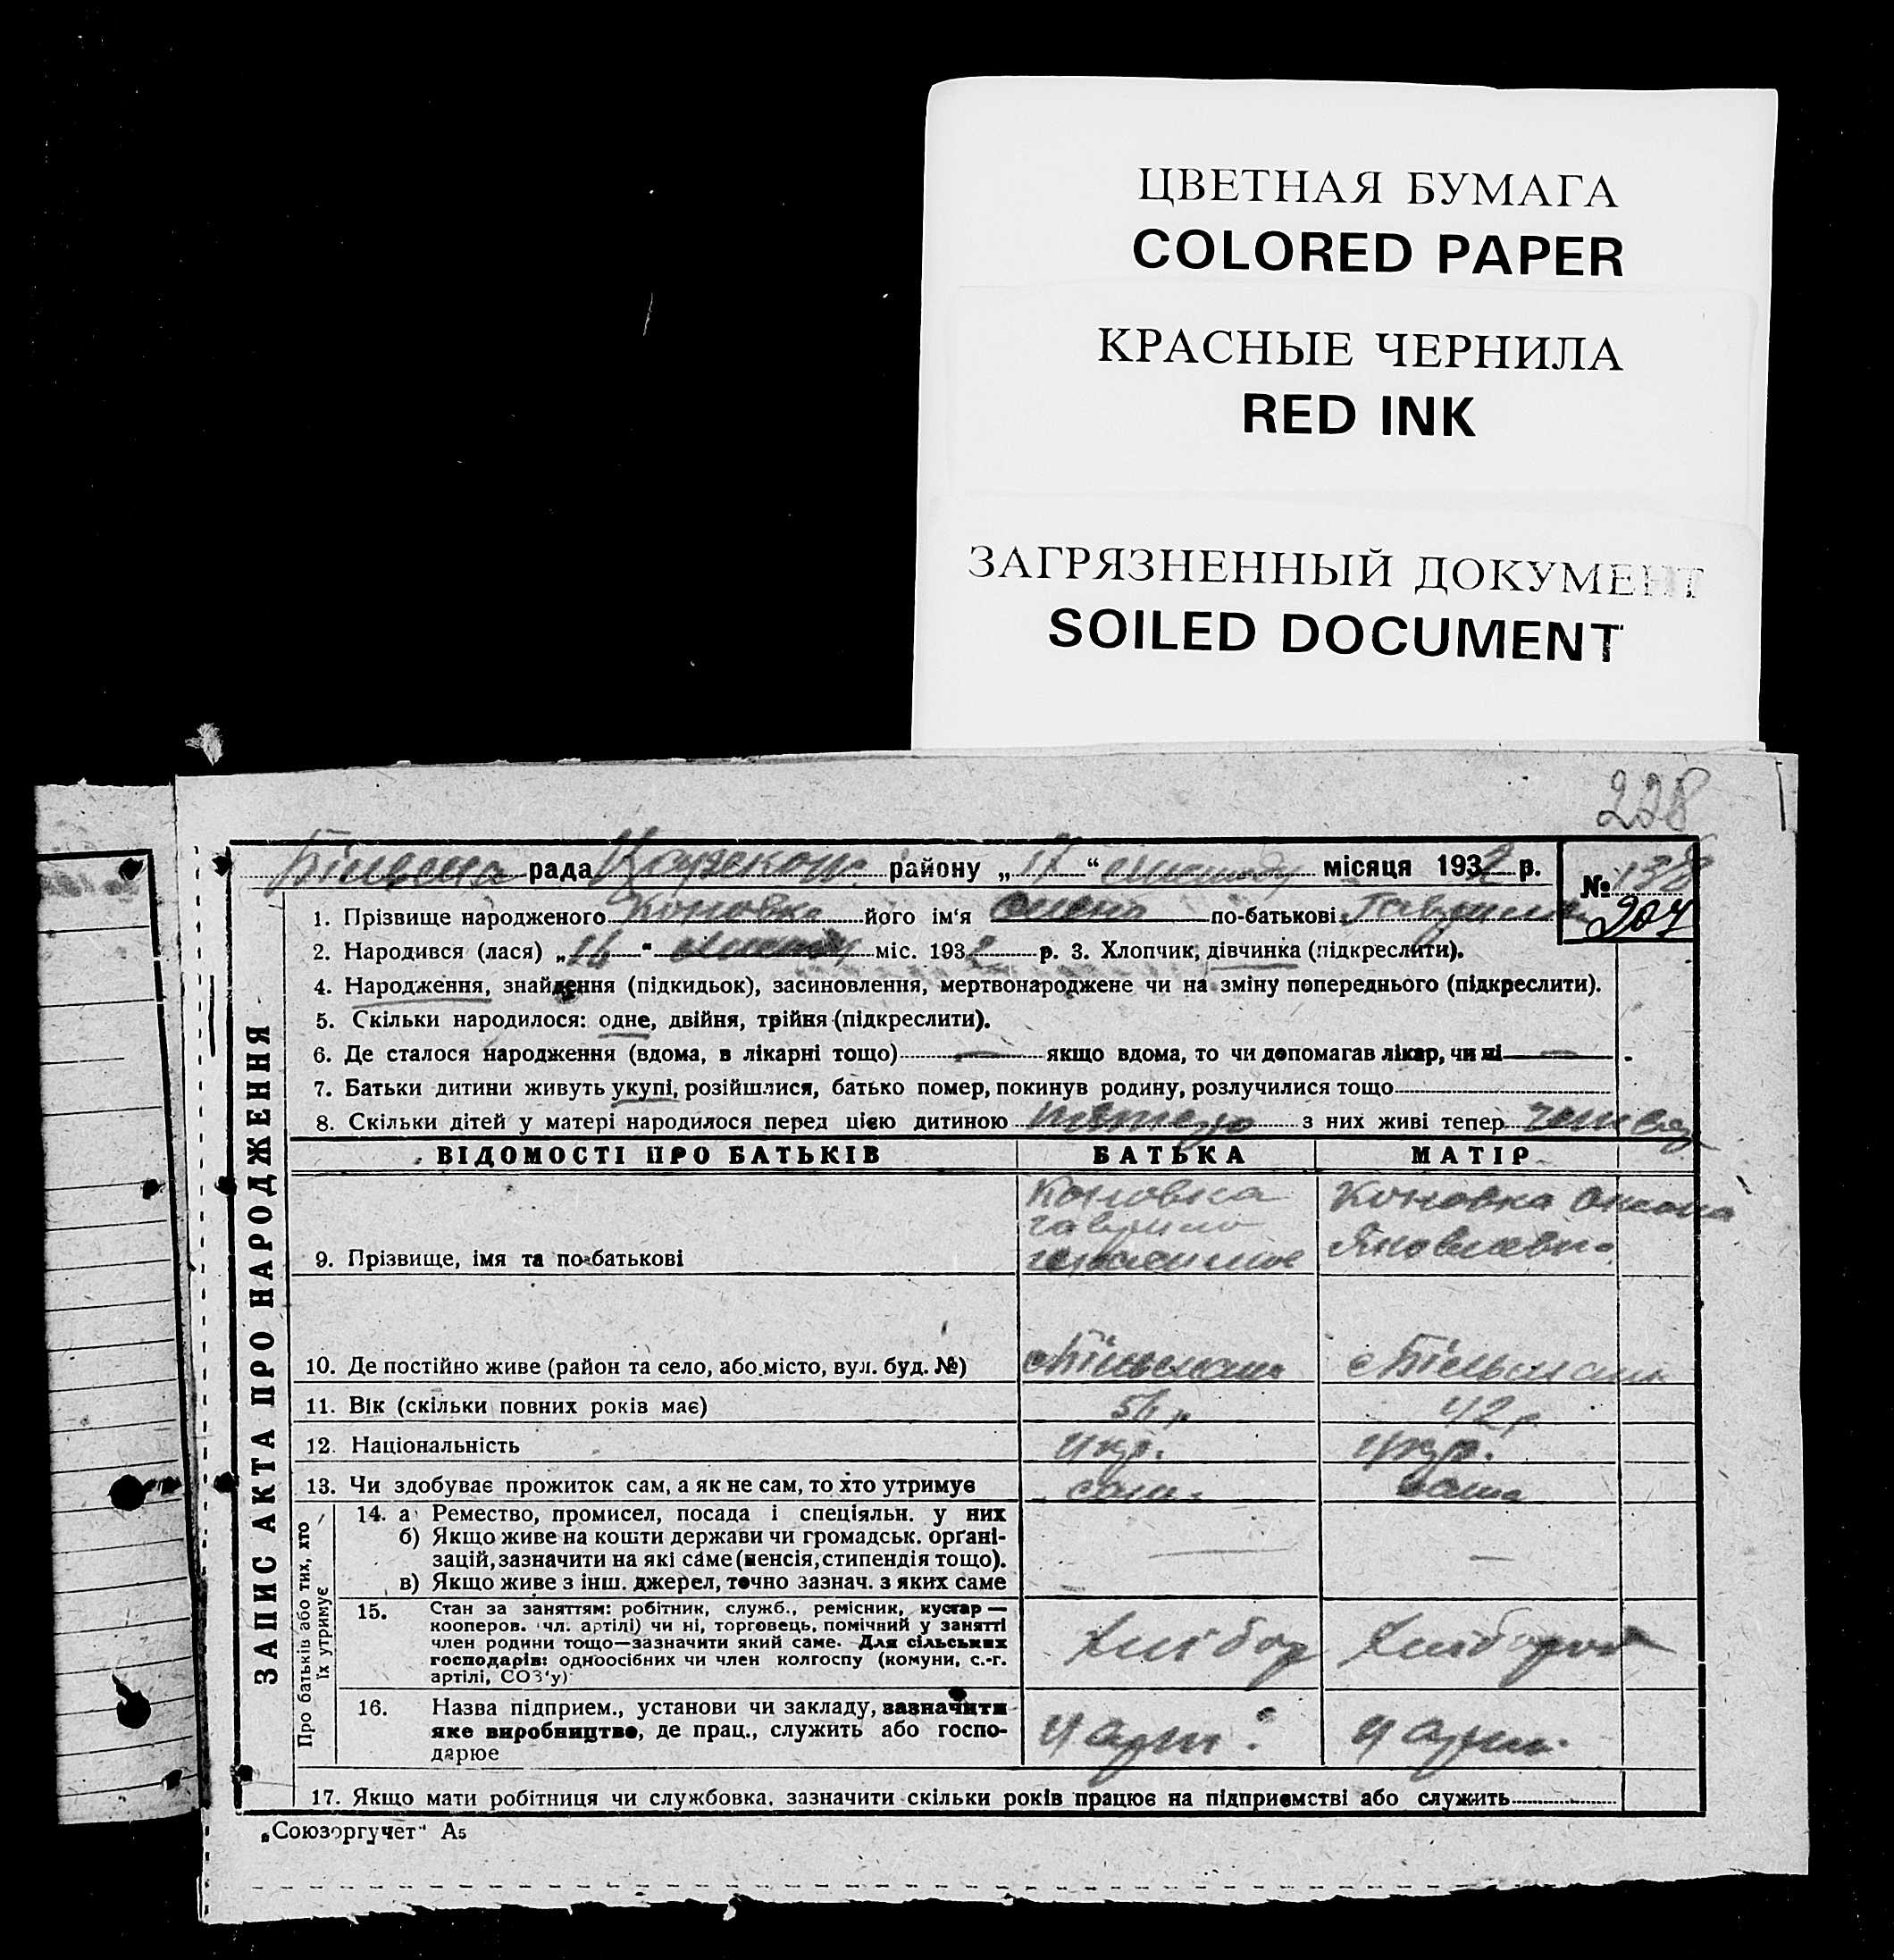 ЦВЕТНАЯ БУМАГА
COLORED PAPER
КРАСНЫЕ ЧЕРНИЛА
RED INK
ЗАГРЯЗНЕННЫЙ ДОКУМЕНТ
SOILED DOCUMENT
228
рада району „17“ місяця 1932 р.
№ 138
207
ЗАПИС АКТА ПРО НАРОДЖЕННЯ
1. Прізвище народженого Коновка його ім‘я по-батькові
2. Народився (лася) „16“ міс. 1932 р. 3. Хлопчик, дівчинка (підкреслити).
4. Народження, знайдення (підкидьок), засиновлення, мертвонароджене чи на зміну попереднього (підкреслити).
5. Скільки народилося: одне, двійня, трійня (підкреслити).
6. Де сталося народження (вдома, в лікарні тощо) — якщо вдома, то чи допомагав лікар, чи ні —
7. Батьки дитини живуть укупі, розійшлися, батько помер, покинув родину, розлучилися тощо
8. Скільки дітей у матері народилося перед цією дитиною з них живі тепер
ВІДОМОСТІ ПРО БАТЬКІВ БАТЬКА МАТІР
9. Прізвище, імя та по-батькові
Коновка
гаврило
Коновка Оксана
Яковлевн.
10. Де постійно живе (район та село, або місто, вул. буд. №)
11. Вік (скільки повних років має) 56 р 42 р.
12. Національність укр. укр.
13. Чи здобуває прожиток сам, а як не сам, то хто утримує сам. сама
Про батьків або тих, хто їх утримує
14. а Ремество, промисел, посада і спеціяльн. у них
б) Якщо живе на кошти держави чи громадськ. орґані-
зацій, зазначити на які саме (пенсія, стипендія тощо). — —
в) Якщо живе з інш. джерел, точно зазнач. з яких саме
15. Стан за заняттям: робітник, служб., ремісник, кустар —
кооперов. чл. артілі) чи ні, торговець, помічний у занятті
член родини тощо—зазначити який саме. Для сільських
господарів: одноосібних чи член колгоспу (комуни, с.-г.
артілі, СОЗ‘у)
хлібор хлібороб
16. Назва підприєм., установи чи закладу, зазначити
яке виробництво, де прац., служить або госпо-
дарює
17. Якщо мати робітниця чи службовка, зазначити скільки років працює на підприємстві або служить
„Союзоргучет“ А5